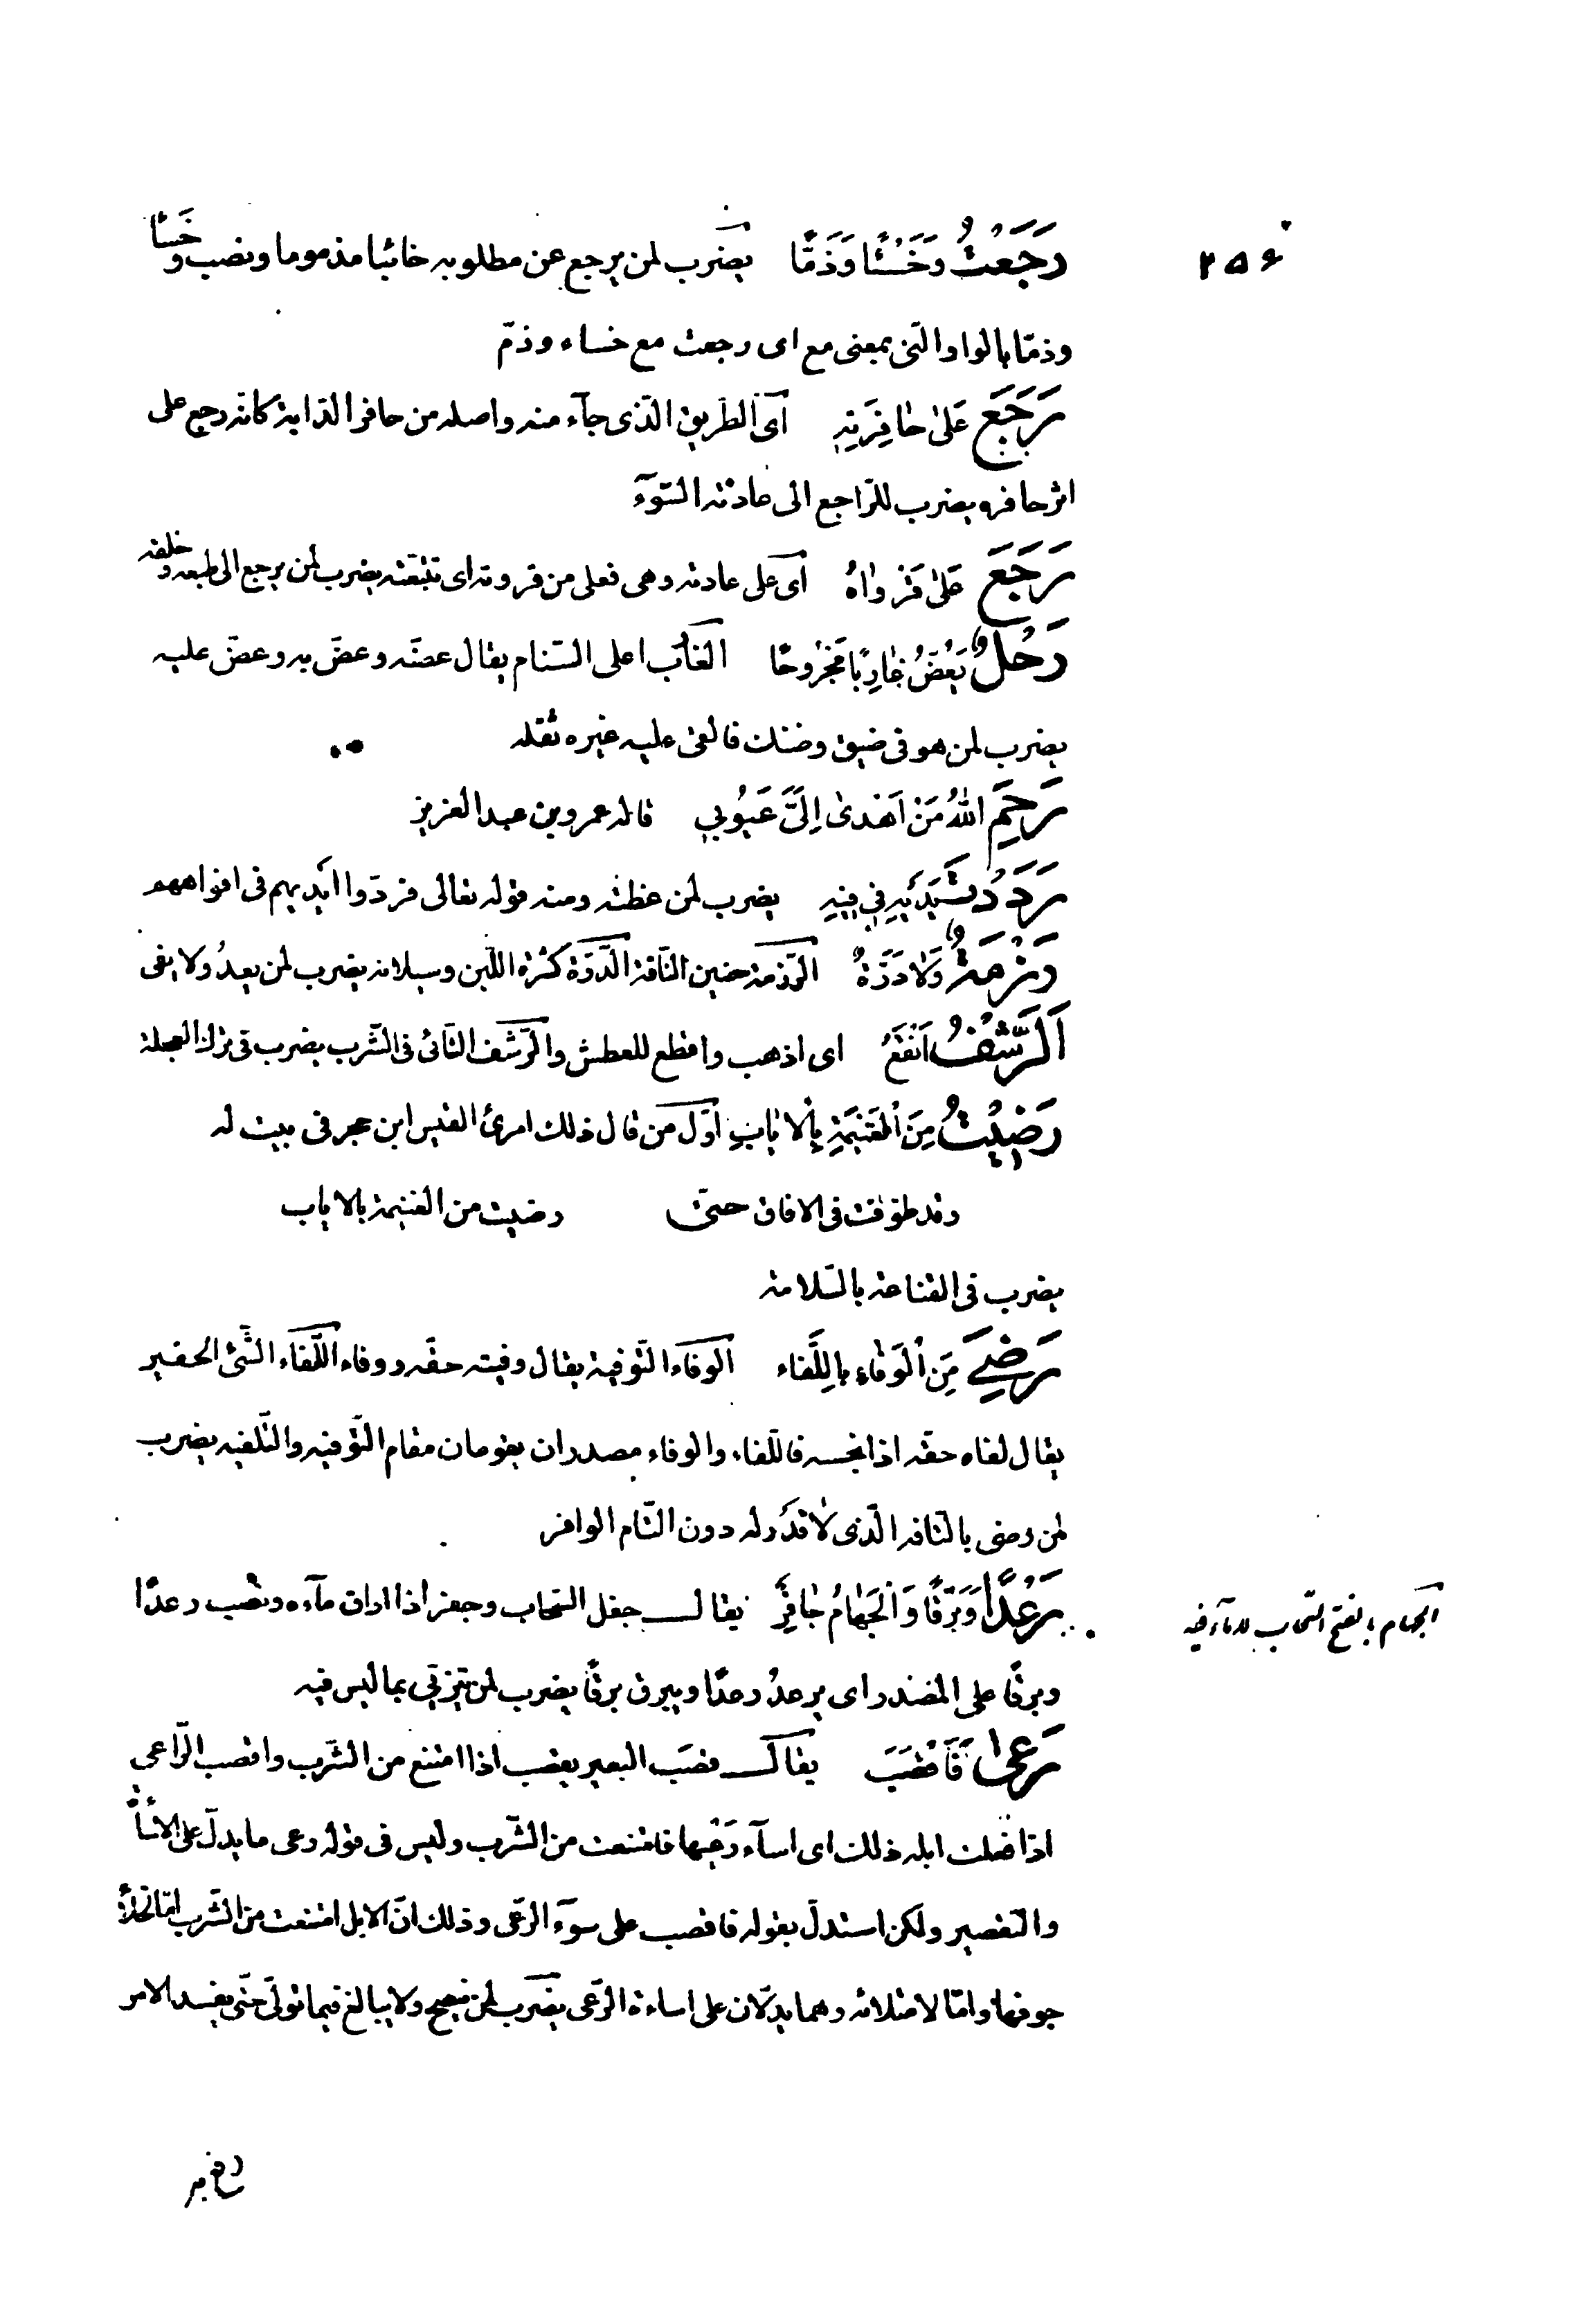 ۲۵۶
رَجَعْتُ وَخَسْئًا وَذَمًّا يضرب لمن يرجع عن مطلوبه خائبا مذموما ونصب وخسأ
وذمّا بالواو التى بمعنى مع اى رجعت مع خساء وذمّ
رَجَعَ عَلىٰ حٰافِرَتِهِ اى الطريق الّذى جآء منه واصله من حافر الدّابة كانّه رجع على
اثر حافره يضرب للرّاجع الى عادته السّوٓء
رَجَعَ عَلىٰ قَرْوٰاهُ اى على عادته وهى فعلى من قروته اى تتبّعته يضرب لمن يرجع الى طبعه وخلقه
رَحْلٌ يَعَضُّ غٰارِبًا مَجْرُوحًا الغارب اعلى السّنام يقال عضّه وعضّ به وعضّ عليه
يضرب لمن هو فى ضيق وضنك فالقى عليه غيره ثقله
رَحِمَ اللهُ مَنْ اَهْدىٰ اِلَىَّ عُيُوبِي قاله عمر وبن عبد العزيز
رَدَدْتُ يَدَيْهِ فِي فِيهِ يضرب لمن غظته ومنه قوله تعالى فردّوا ايديهم فى افواههم
رَزَمَةٌ وَلاٰ دَرَّةٌ الرّزمة حنين النّاقة الدّرّة كثرة اللّبن وسيلانه يضرب لمن يعدُ ولا يفى
اَلرَّشْفُ اَنْقَعُ اى اذهب واقطع للعطش والرّشف التّانى فى الشّرب يضرب فى ترك العجلة
رَضِيتُ مِنَ الْغَنِيمَةِ بِالْاِيٰابِ اوّل من قال ذلك امرئ القيس ابن حجر فى بيت له
وقد طوّفت فى الافاق حتّى رضيت من الغنيمة بالاياب
يضرب فى القناعة بالسّلامة
رَضِيَ مِنَ الْوَفٰاءِ بِاللَّفٰاء الوفاء التّوفية يقال وفيته حقّه ووفاء اللّفاء الشّئ الحقير
يقال لفاه حقّه اذا بخسه فاللّفاء والوفاء مصدران يقومان مقام التّوفيه والتّلفيه يضرب
لمن رضى بالتّافه الّذى لا قدر له دون التّام الوافر
رَعْدًا وَبَرْقًا وَالْجَهٰامُ جٰافِرٌ يقال جفل السّحاب وجفر اذا اراق مآءه ونصب رعدًا
وبرقًا على المصدر اى يرعدُ رعدًا ويبرق برقًا يضرب لمن يتزيّى بما ليس فيه
الجهام بالفتح السّحاب لا مآء فيه
رَعىٰ فَاَقْصَبَ يقال قصب البعير يقصب اذا امتنع من الشّرب واقصب الرّاعى
اذا فعلت ابله ذلك اى اسآء رَعْيها فامتنعت من الشّرب وليس فى قوله رعى ما يدلّ على الاسأة
والتقصير ولكن استدلّ بقوله فاقصب على سوٓء الرّعى وذلك انّ الابل امتنعت من الشّرب امّا لخلأ
جوفها وامّا لامتلائه وهما يدلّان على اساءة الرّعى يضرب لمن ينصح ولا يبالغ فيما تولّى حتّى يفسد الامر